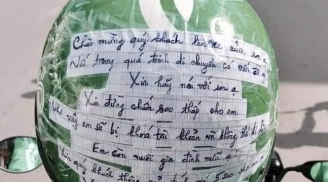 Chào mừng quý khách lên xe của em ạ
Nếu trong quá trình di chuyển có vấn đề gì
Xin hãy nói với em ạ
Xin đừng chấm sao thấp cho em
Như vậy em sẽ bị khoá tài khoản và không thể
Em còn nuôi gia đình nữa ạ
Xin quý khách thông 5 sao